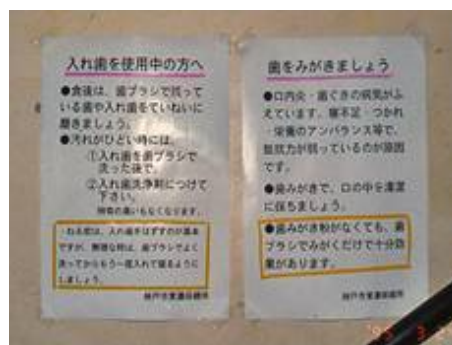 入れ歯を使用中の方へ
●食後は、歯ブラシで残って
いる歯や入れ歯をていねいに
磨きましょう。
●汚れがひどい時には、
①入れ歯を歯ブラシで
洗った後で、
②入れ歯洗浄剤につけて
下さい。
特有の臭いもなくなります。
・ねる前は、入れ歯をはずすのが基本
ですが、無理な時は、歯ブラシでよく
洗ってからもう一度入れて寝るように
しましょう。
神戸市東灘保健所
歯をみがきましょう
●口内炎・歯ぐきの病気がふ
えています。寝不足・つかれ
・栄養のアンバランス等で、
抵抗力が弱っているのが原因
です。
●歯みがきで、口の中を清潔
に保ちましょう。
●歯みがき粉がなくても、歯
ブラシでみがくだけで十分効
果があります。
神戸市東灘保健所
'95 3 2